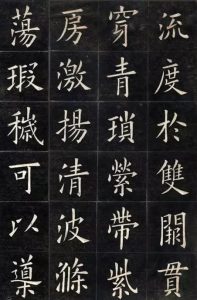 流度於雙闕貫
穿青瑣縈帶紫
房激揚清波滌
蕩瑕穢可以導